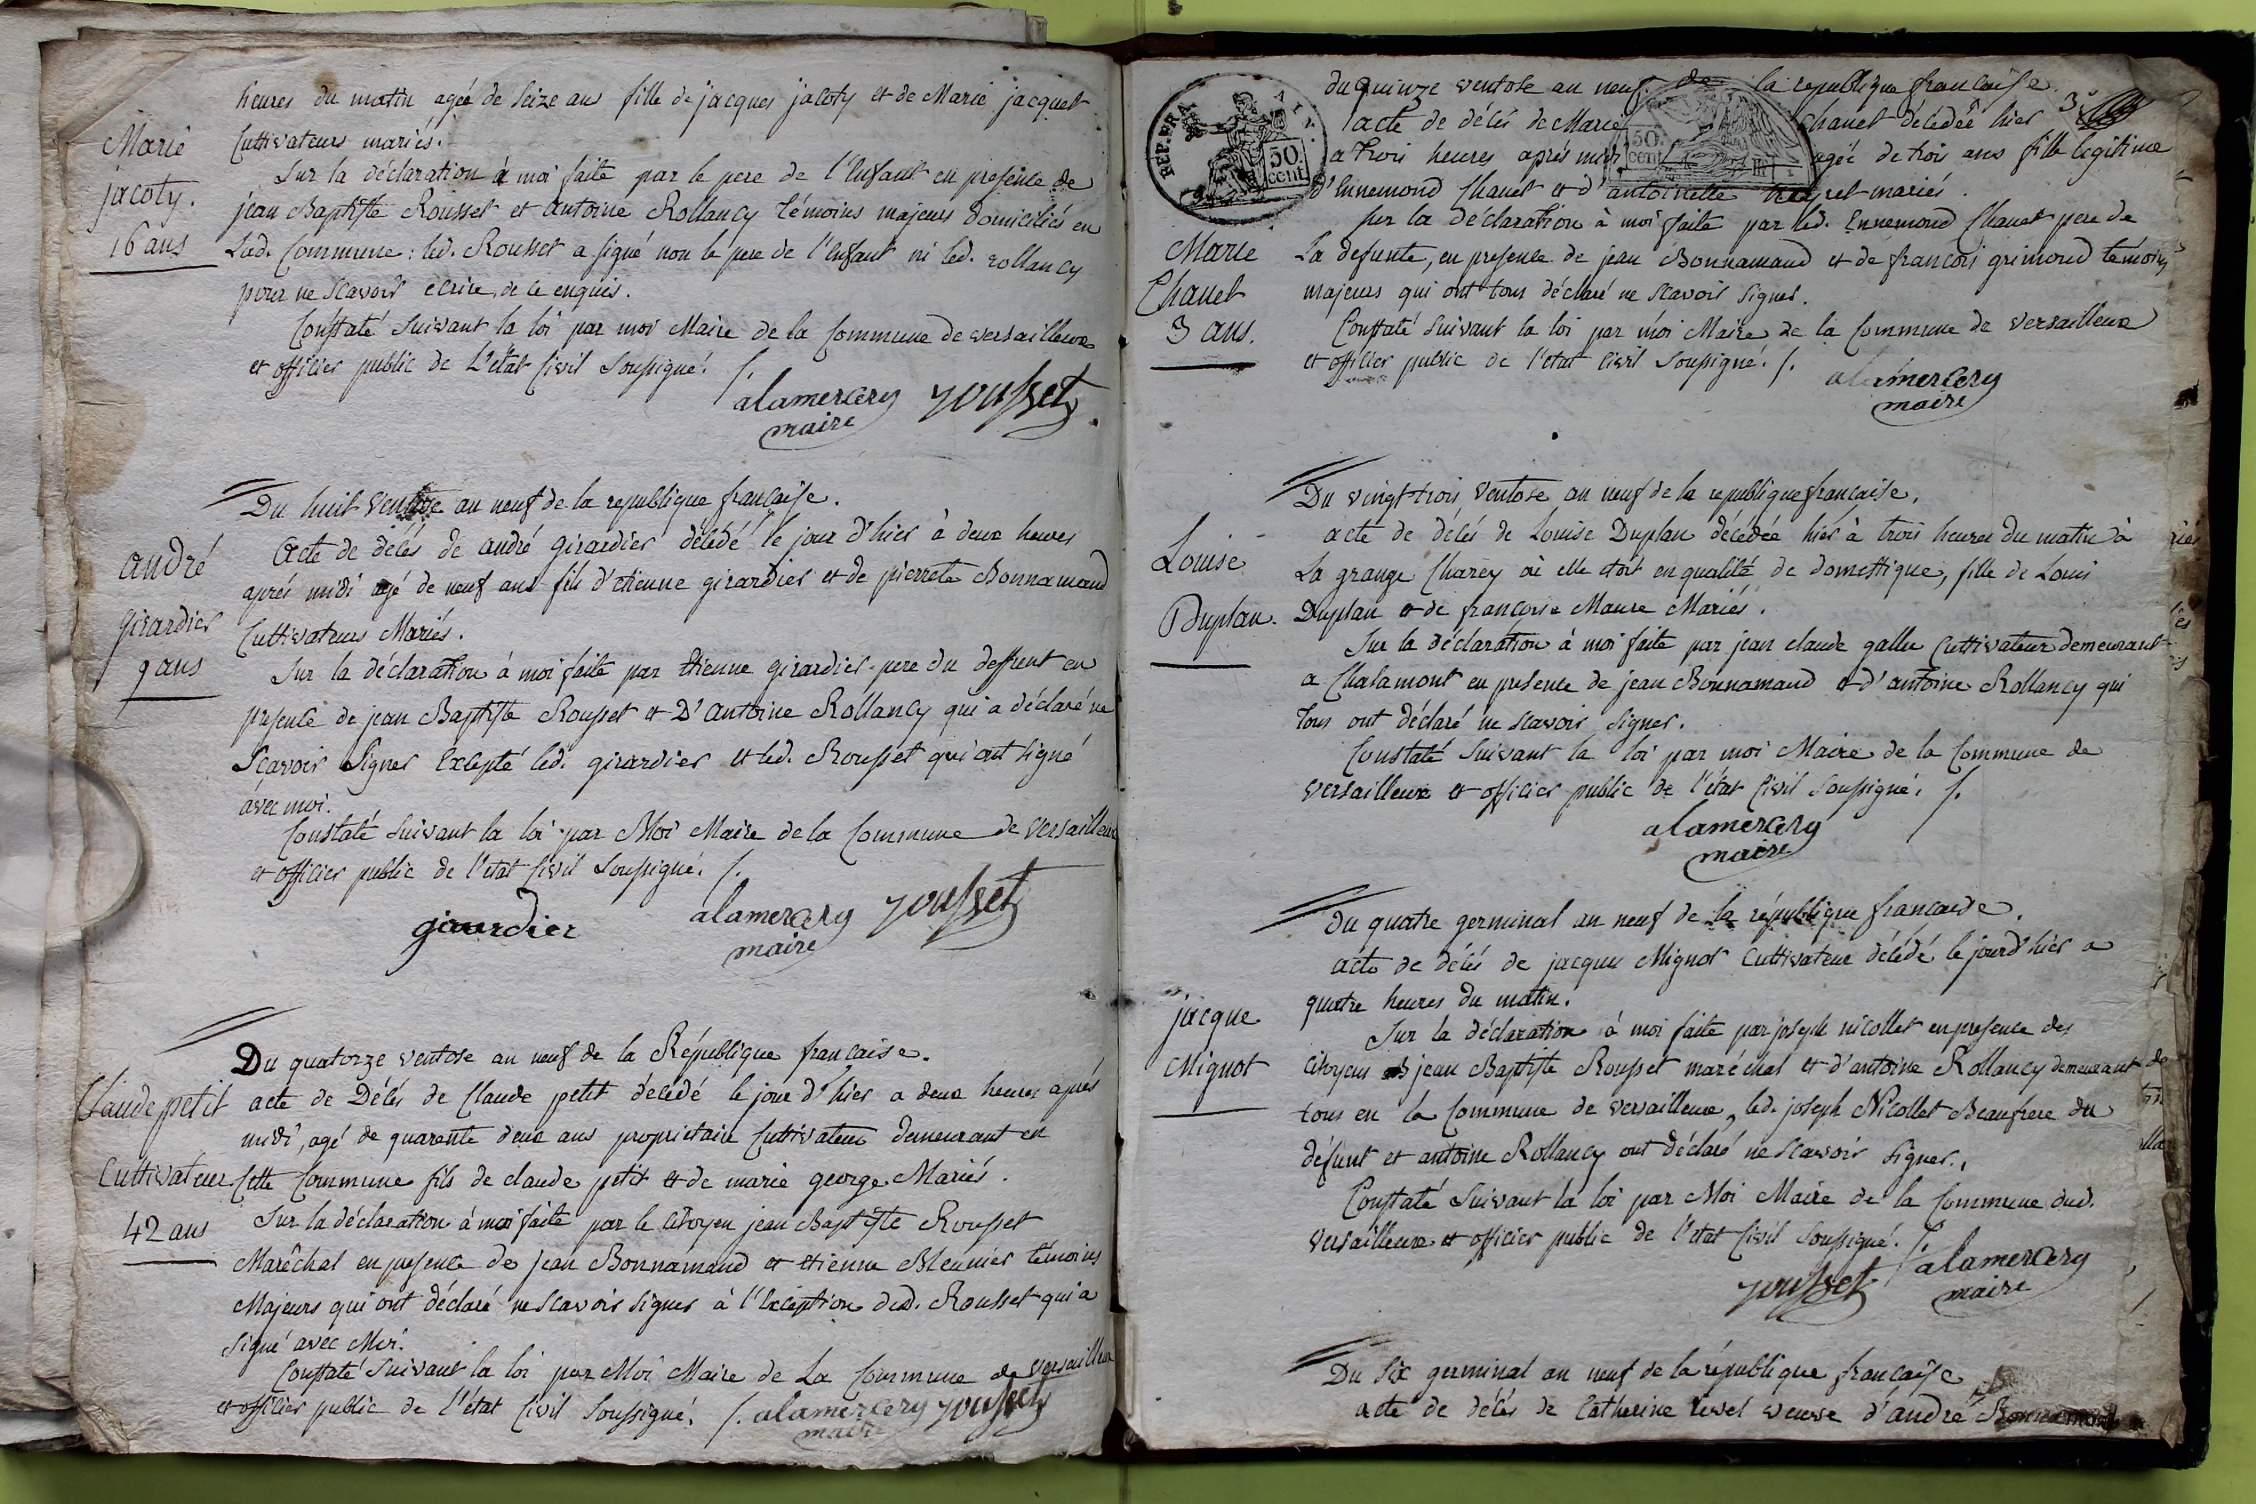 heures du matin agée de seize ans fille de jacques jacoty et de Marie jacquet
Cultivateurs mariés.
Marie
jacoty.
16 ans
Sur la déclaration à moi faite par le pere de l'Enfant en presence de
jean Baptiste Rousset et Antoine Rollancy témoins majeurs domiciliés en
Lad. Commune : led. Rousset a signé non le pere de l'enfant ni led. rollancy
pour ne scavoir écrire, de ce enquis.
Constaté suivant la loi par moi Maire de la Commune de versailleux
et officier public de L'état Civil soussigné. /.
alamercery rousset
maire
Du huit Ventose an neuf de la republique française.
andré
girardier
9 ans
Acte de décés de andré girardier décédé le jour d'hier à deux heures
aprés midi agé de neuf ans fils d'etienne girardier et de pierrette Bonnamand
Cultivateurs Mariés.
Sur la déclaration à moi faite par Etienne girardier pere du deffunt en
presence de jean Baptiste Rousset et D'antoine Rollancy qui a déclaré ne
Scavoir Signer Excepté led. girardier et led. Rousset qui ont signé
avec moi.
Constaté suivant la loi par Moi Maire de la Commune de versailleux
et officier public de l'etat Civil soussigné. /.
girardier alamercery rousset
maire
Du quatorze ventose an neuf de la République française.
Claude petit
Cultivateur
42 ans
acte de Décés de Claude petit décédé le jour d'hier a deux heures aprés
midi, agé de quarente deux ans proprietaire Cultivateur demeurant en
Cette Commune fils de claude petit et de marie george Mariés.
Sur la déclaration à moi faite par le Citoyen jean Baptiste Rousset
Maréchal en presence de jean Bonnamand et etienne Meunier témoins
Majeurs qui ont déclaré ne scavoir signer à l'Exception dud. Rousset qui a
signé avec Moi.
Constaté suivant la loi par Moi Maire de La Commune de versailleux
et officier public de l'état Civil soussigné. /. alamercery rousset
maire
REP. FRA.
50.
cent.
50.
cent
3e
du Quinze ventose an neuf de la republique française.
acte de décés de Marie Chanet décédée hier
a trois heures aprés midi agée de trois ans fille legitime
d'Ennemond Chanet et d'antoinette mariés.
Marie
Chanet
3 ans.
sur la déclaration à moi faite par led. Ennemond Chanet pere de
La defunte, en presence de jean Bonnamand et de francois grimond témoins
majeurs qui ont tous déclaré ne scavoir signer.
Constaté suivant la loi par moi Maire de la Commune de versailleux
et officier public de l'état civil soussigné. /. alamercery
maire
Du vingt-trois Ventose an neuf de la republique française.
Louise
Duplan.
acte de décés de Louise Duplan décédée hier à trois heures du matin à
La grange Charey où elle etoit en qualité de domestique, fille de Louis
Duplan et de françoise Maure Mariés.
Sur la déclaration à moi faite par jean claude Cultivateur demeurant
a Chalamont en presence de jean Bonnamand et d'antoine Rollancy qui
tous ont déclaré ne scavoir signer.
Constaté suivant la loi par moi Maire de la Commune de
versailleux et officier public de l'état Civil soussigné. /.
alamercery
maire
Du quatre germinal an neuf de la république francaise.
jacque
Mignot
acte de décés de jacques Mignot Cultivateur décédé le jour d'hier a
quatre heures du matin.
Sur la déclaration à moi faite par joseph nicollet en presence des
Citoyens jean Baptiste Rousset maréchal et d'antoine Rollancy demeurant
tous en la Commune de versailleux, led. joseph Nicollet Beaufrere du
défunt et antoine Rollancy ont déclaré ne scavoir signer.
Constaté suivant la loi par Moi Maire de la Commune dud.
versailleux et officier public de l'etat Civil soussigné. /.
rousset alamercery
maire
Du Six germinal an neuf de la république française
acte de décés de Catherine veuve d'andré Bonnamand